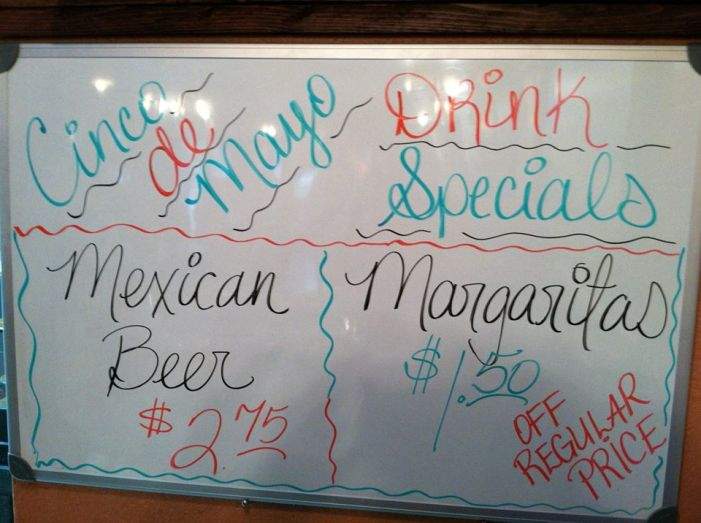 Cinco
de
Mayo
Drink
Specials
Mexican
Beer
$2.75
Margaritas
$1.50
OFF
REGULAR
PRICE